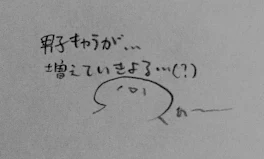 男子キャラが…
増えていきよる…(?)